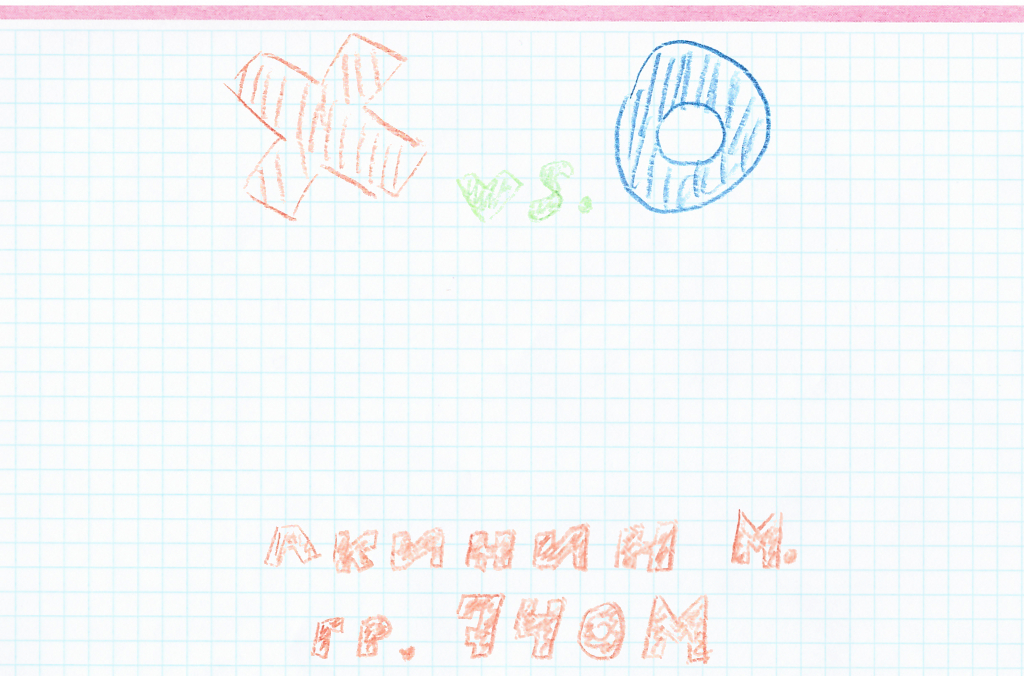 X vs. O
Акинин М.
гр. 740М